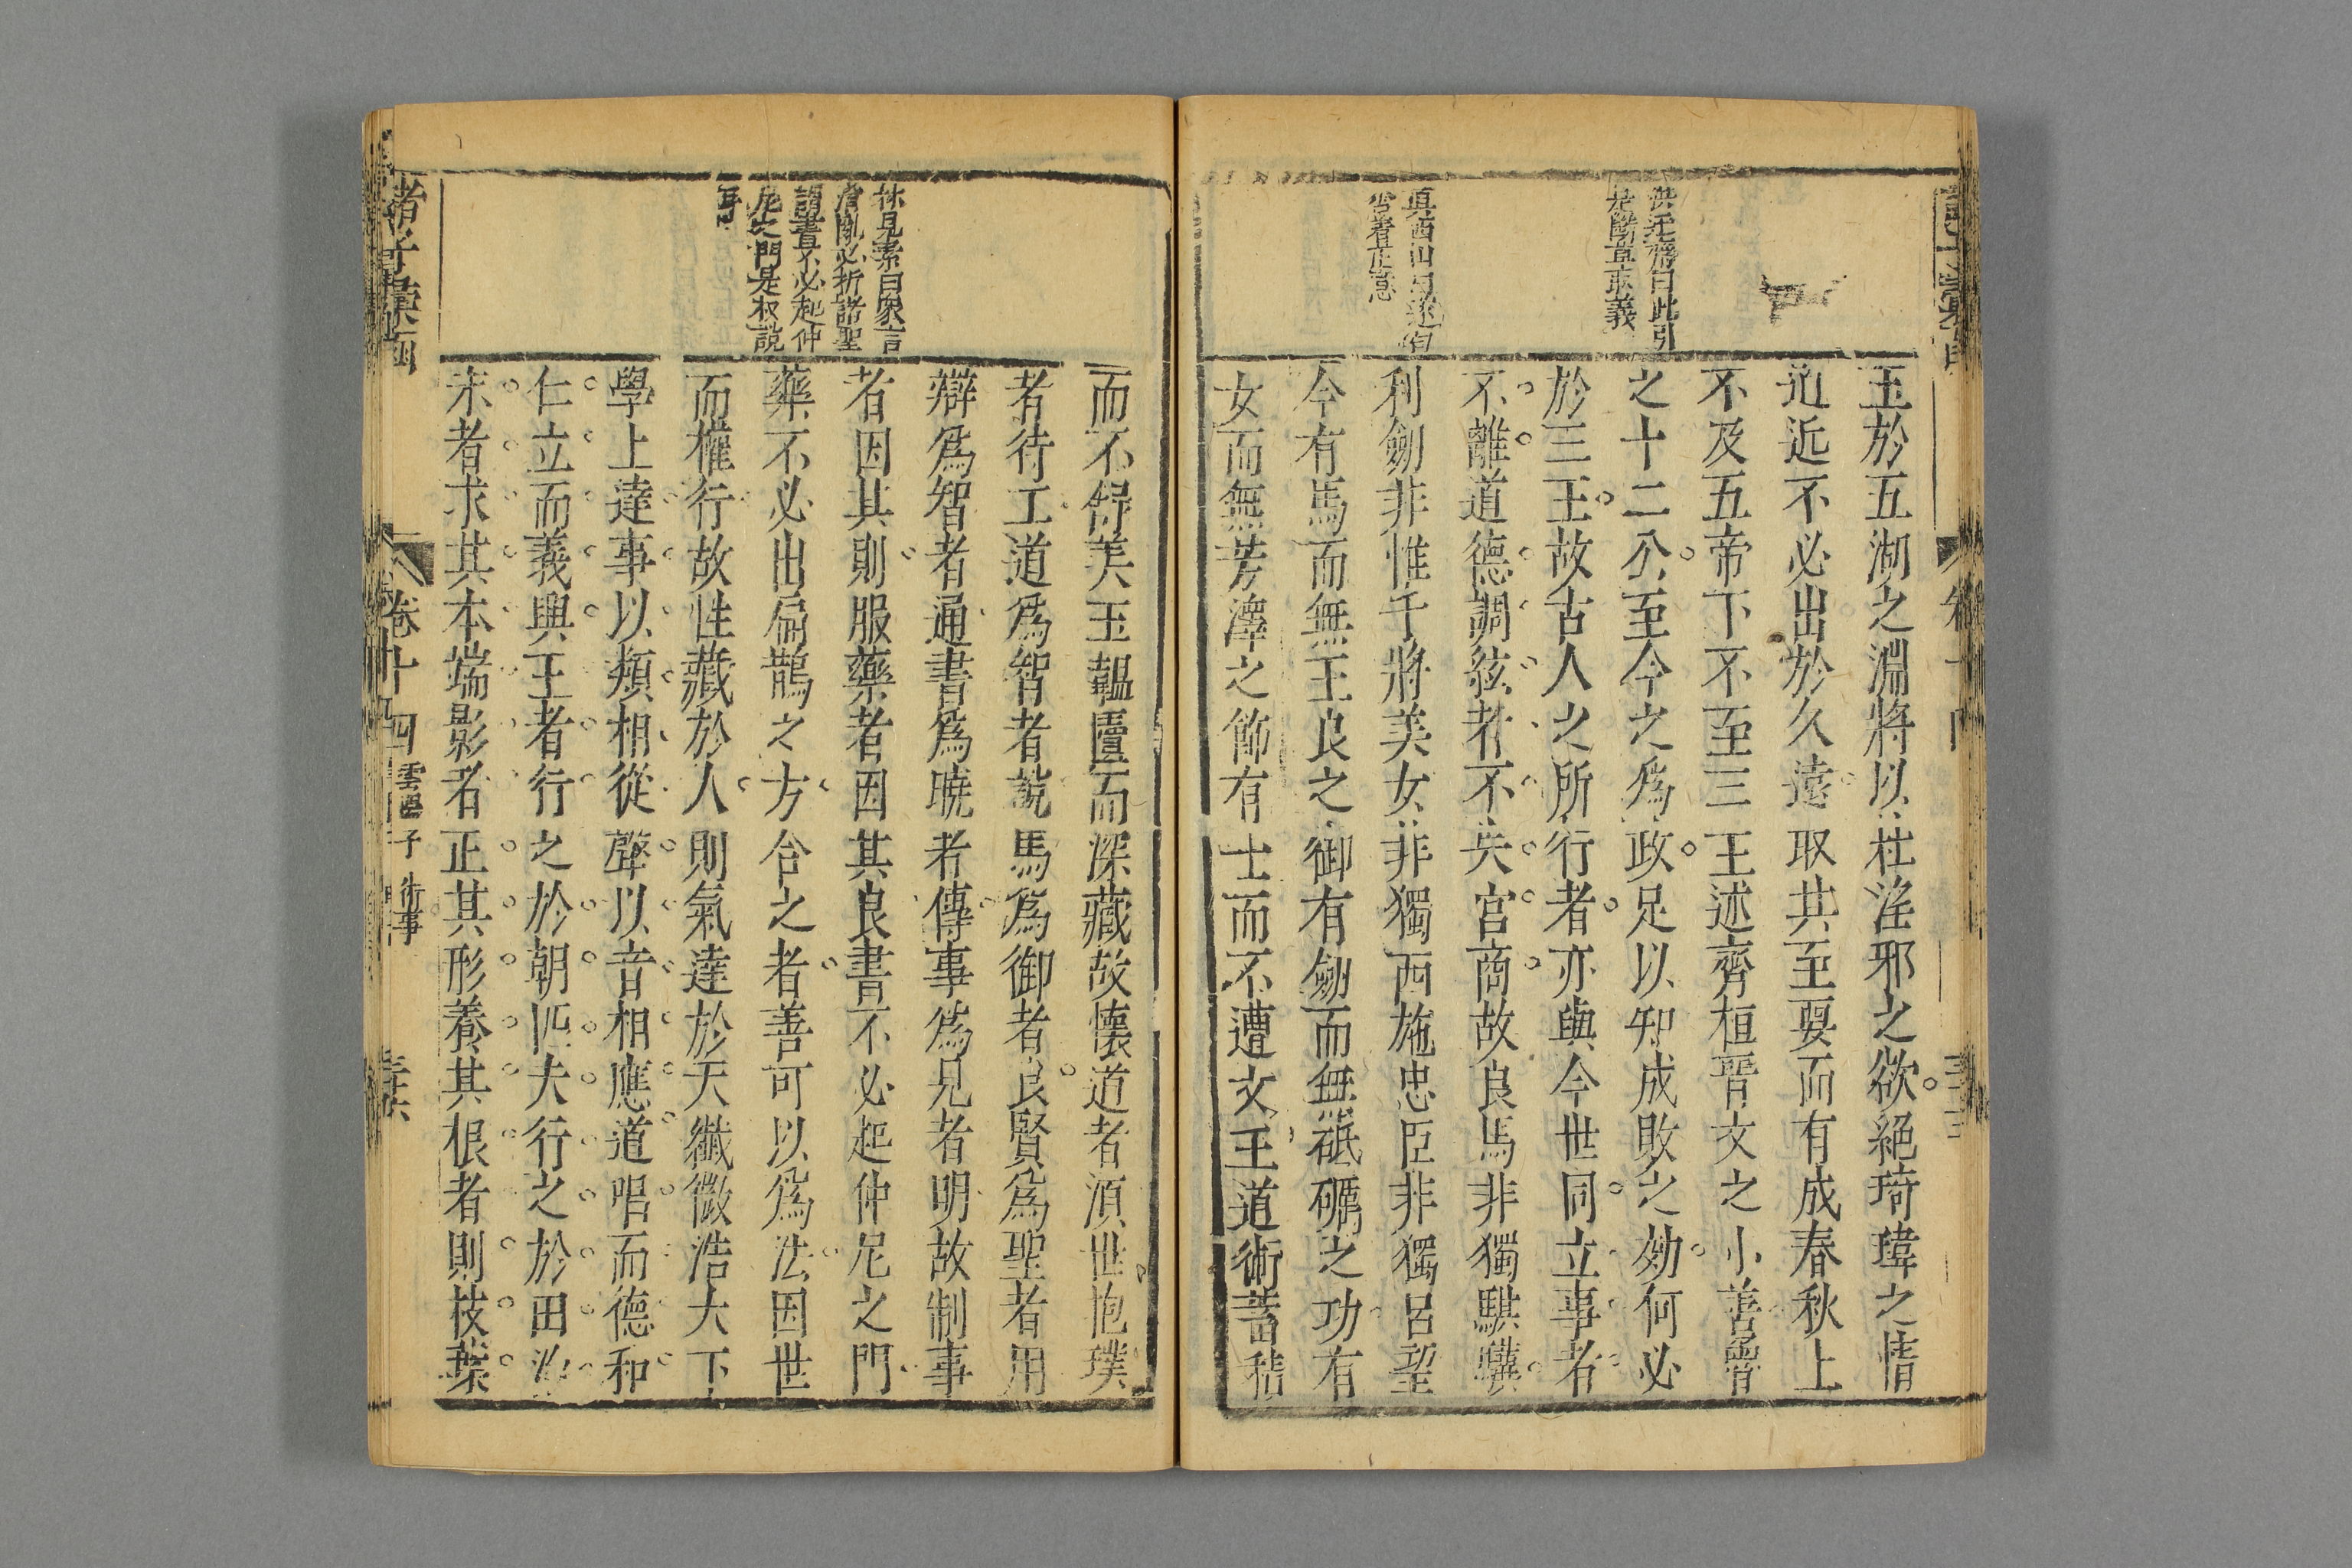 洪（）齋曰此引
是斷章取義
真西山曰
者正意
玉於五湖之淵將以杜淫邪之欲絕琦瑋之情
道近不必出於久遠取其至要而有成春秋上
不及五帝下不至三王述齊桓晉文之小善魯
之十二公至今之為政足以知成敗之効何必
於三王故古人之所行者亦與今世同立事者
不離道德調絃者不失宮商故良馬非獨騏驥
利劒非惟干將美女非獨西施忠臣非獨呂望
今有馬而無王良之御有劒而無砥礪之功有
女而無芳澤之飾有士而不遭文王道術蓄積
林見素曰眾言
淆亂必折諸聖
謂書不必起仲
尼之門是权說
耳
而不舒美玉韞匵而深藏故懷道者湏世抱璞
者待工道為智者說馬為御者良賢為聖者用
辯為智者通書為曉者傳事為見者明故制事
者因其則服藥者因其良書不必起仲尼之門
藥不必出扁鵲之方合之者善可以為法因世
而權行故性藏於人則氣達於天纖微浩大下
學上達事以類相從聲以音相應道唱而德和
仁立而義興王者行之於朝匹夫行之於田治
末者求其本端影者正其形養其根者則枝葉
諸子彙函 卷十四 雲陽子 術事